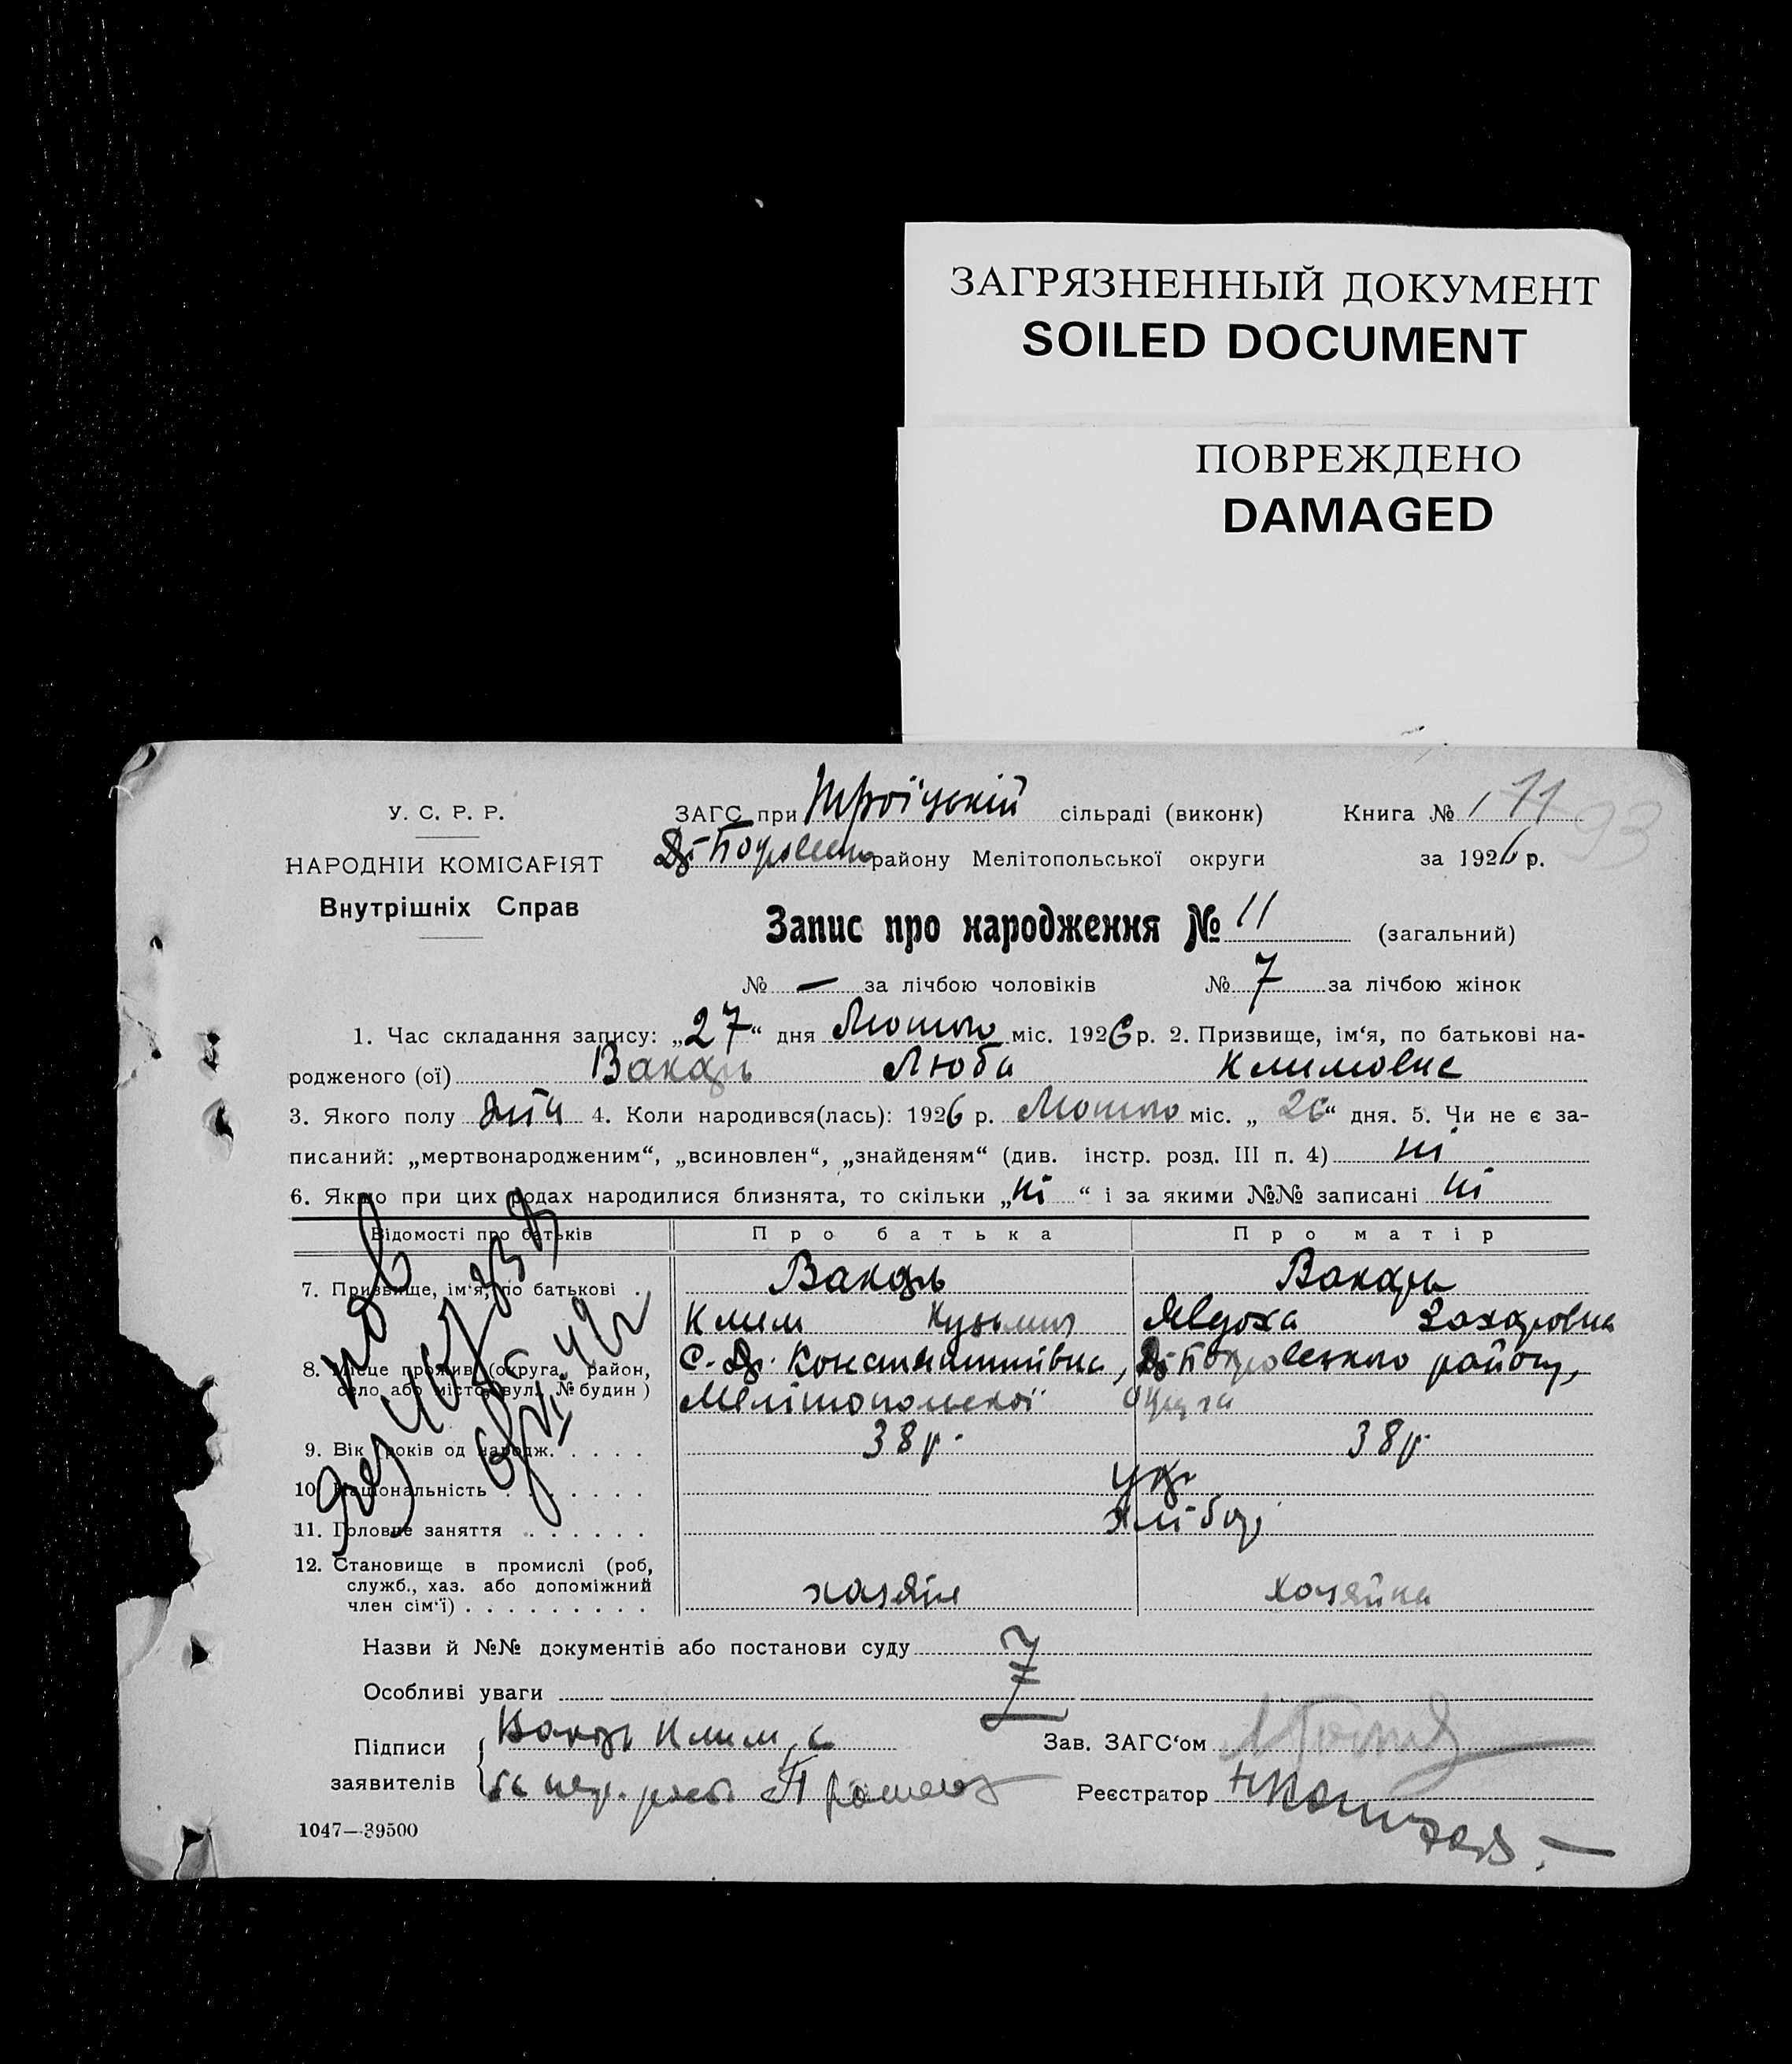 ЗАГРЯЗНЕННЫЙ ДОКУМЕНТ
SOILED DOCUMENT
ПОВРЕЖДЕНО
DAMAGED
У. С. Р. Р.
НАРОДНІЙ КОМІСАРІЯТ
Внутрішніх Справ
ЗАГС при Троїцькій сільраді (виконк) Книга № 11
93
району Мелітопольської округи за 1926 р.
Запис про народження № 11 (загальний)
№ — за лічбою чоловіків № 7 за лічбою жінок
1. Час складання запису: „27“ дня Лютого міс. 1926 р. 2. Призвище, ім‘я, по батькові на-
родженого (ої) Вакарь Люба Климовна
3. Якого полу жін 4. Коли народився(лась): 1926 р. Лютого міс. „26“ дня. 5. Чи не є за-
писаний: „мертвонародженим“, „всиновлен“, „знайденям“ (див. інстр. розд. III п. 4) ні
6. Якщо при цих родах народилися близнята, то скільки „ні“ і за якими №№ записані ні
Відомості про батьків Про батька Про матір
7. Призвище, ім‘я, по батькові . Вакарь Вакарь
Клим Кузьмич Явдоха Захаровна
8. Місце прожив. (округа, район, село або місто, вул. № будин) С. Др. Константинівка, Др Покровського району,
Мелітопольської округи
9. Вік (років од народж. . . . . . 38 р. 38 р.
10. Національність . . . . . . . укр
11. Головне заняття . . . . . . хлібор
12. Становище в промислі (роб,
служб., хаз. або допоміжний
член сім‘ї) . . . . . . . . . хазяїн хозяйка
Назви й №№ документів або постанови суду
Особливі уваги
Підписи Вакарь Клим, а
заявителів за
Зав. ЗАГС‘ом
Реєстратор
1047—39500